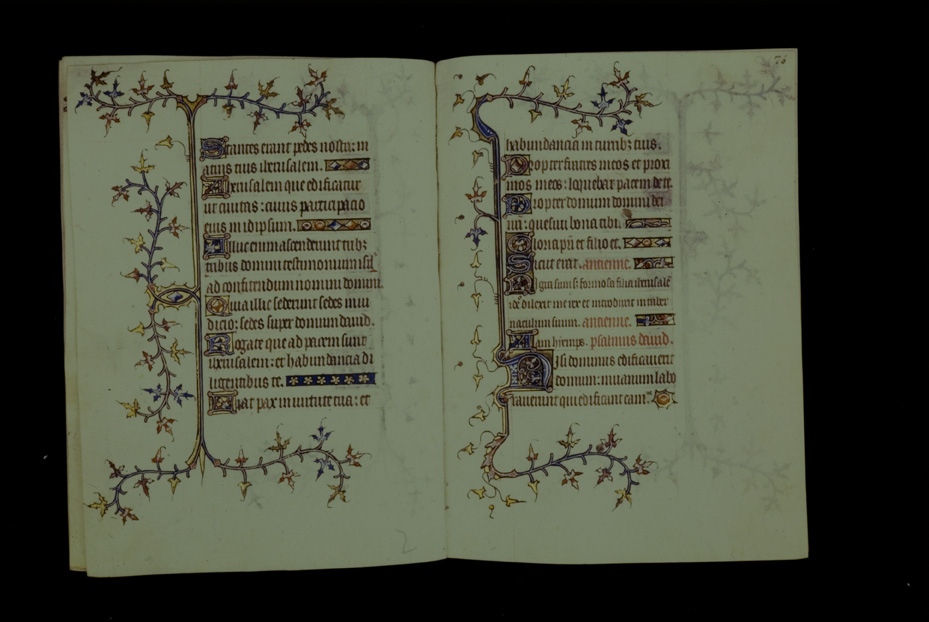 Stantes erant pedes nostri: in
atriis tuis iherusalem.
Iherusalem que edificatur
ut civitas: cuius participacio
eius in idipsum.
Illuc enim ascenderunt tribus
tribus domini testimonium isrl
ad confitendum nomini domini.
Quia illic sederunt sedes in iu
dicio: sedes super domum david.
Rogate que ad pacem sunt
iherusalem: et habundancia di
ligentibus te.
Fiat pax in virtute tua: et
75
habundancia in turribus tuis.
Propter fratres meos et proxi
mos meos: loquebar pacem de te.
Propter domum domini dei
nri: quesivi bona tibi.
Gloria pri et filio et.
Sicut erat. ancienne.
Nigra sum sed formosa filia iherusale
ideo dilexit me rex et introduxit in tuber
naculum suum. ancienne.
Iam hiemps. psalmus david.
Nisi dominus edificaverit
domum: in vanum labo
raverunt qui edificant eam.
2